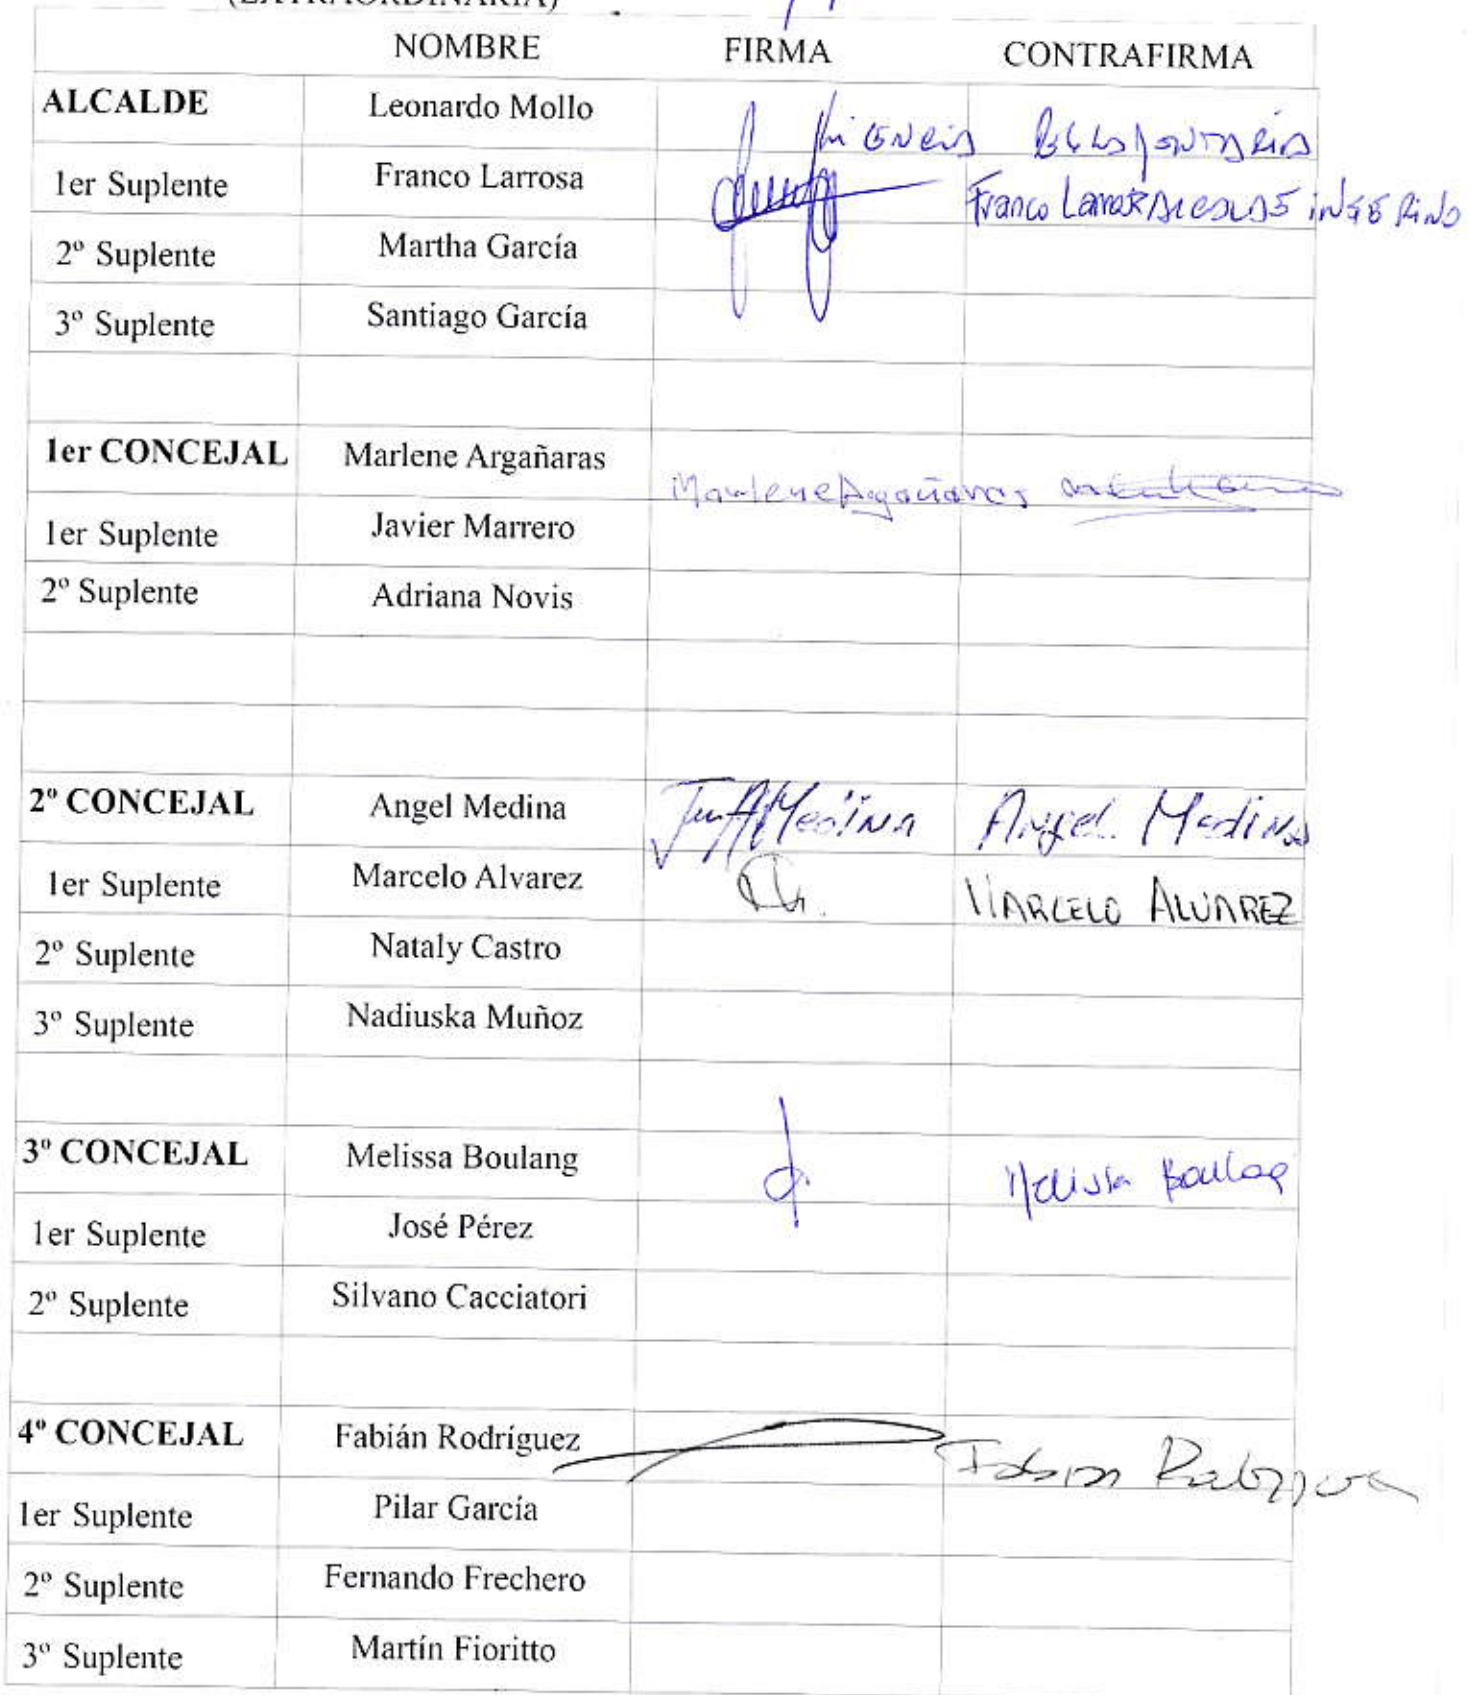 (EXTRAORDINARIA)
NOMBRE FIRMA CONTRAFIRMA
ALCALDE Leonardo Mollo
1er Suplente Franco Larrosa Franco
2º Suplente Martha García
3º Suplente Santiago García
1er CONCEJAL Marlene Argañaras Marlene Argañaras
1er Suplente Javier Marrero
2º Suplente Adriana Novis
2º CONCEJAL Angel Medina Medina Angel Medina
1er Suplente Marcelo Alvarez MARCELO ALVAREZ
2º Suplente Nataly Castro
3º Suplente Nadiuska Muñoz
3º CONCEJAL Melissa Boulang Melissa
1er Suplente José Pérez
2º Suplente Silvano Cacciatori
4º CONCEJAL Fabián Rodríguez Fabian
1er Suplente Pilar García
2º Suplente Fernando Frechero
3º Suplente Martín Fioritto